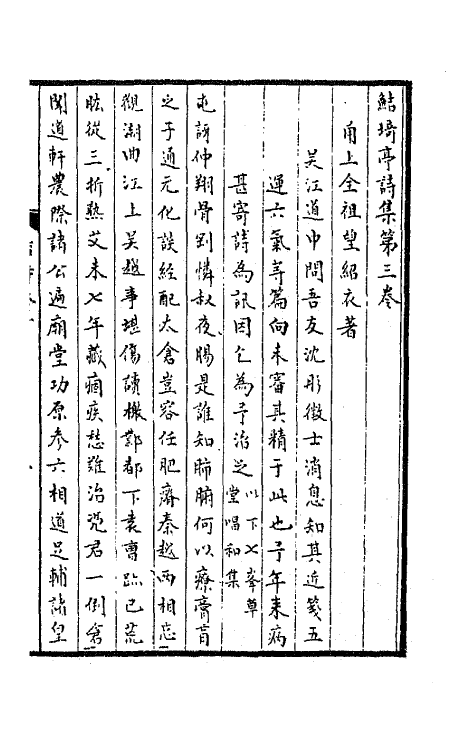 鮚埼亭詩集第三卷
甬上全祖望紹衣著
吴江道中問吾友沈彤徵士消息知其近箋五
運六氣等篇向未審其精于此也予年來病
甚寄詩為訊因乞為予治之以下七峯草堂唱和集
屯訝仲翔骨別憐叔夜腸是誰知肺腑何以療膏肓
之子通元化談經配太倉豈容任肥瘠秦越兩相忘
觀濤曲江上吴越事堪傷讀檄鄴都下袁曹跡已荒
肱從三折熟艾未七年藏痼疾愁難治凭君一倒倉
聞道軒農際諸公遍廟堂功原参六相道足輔諸皇